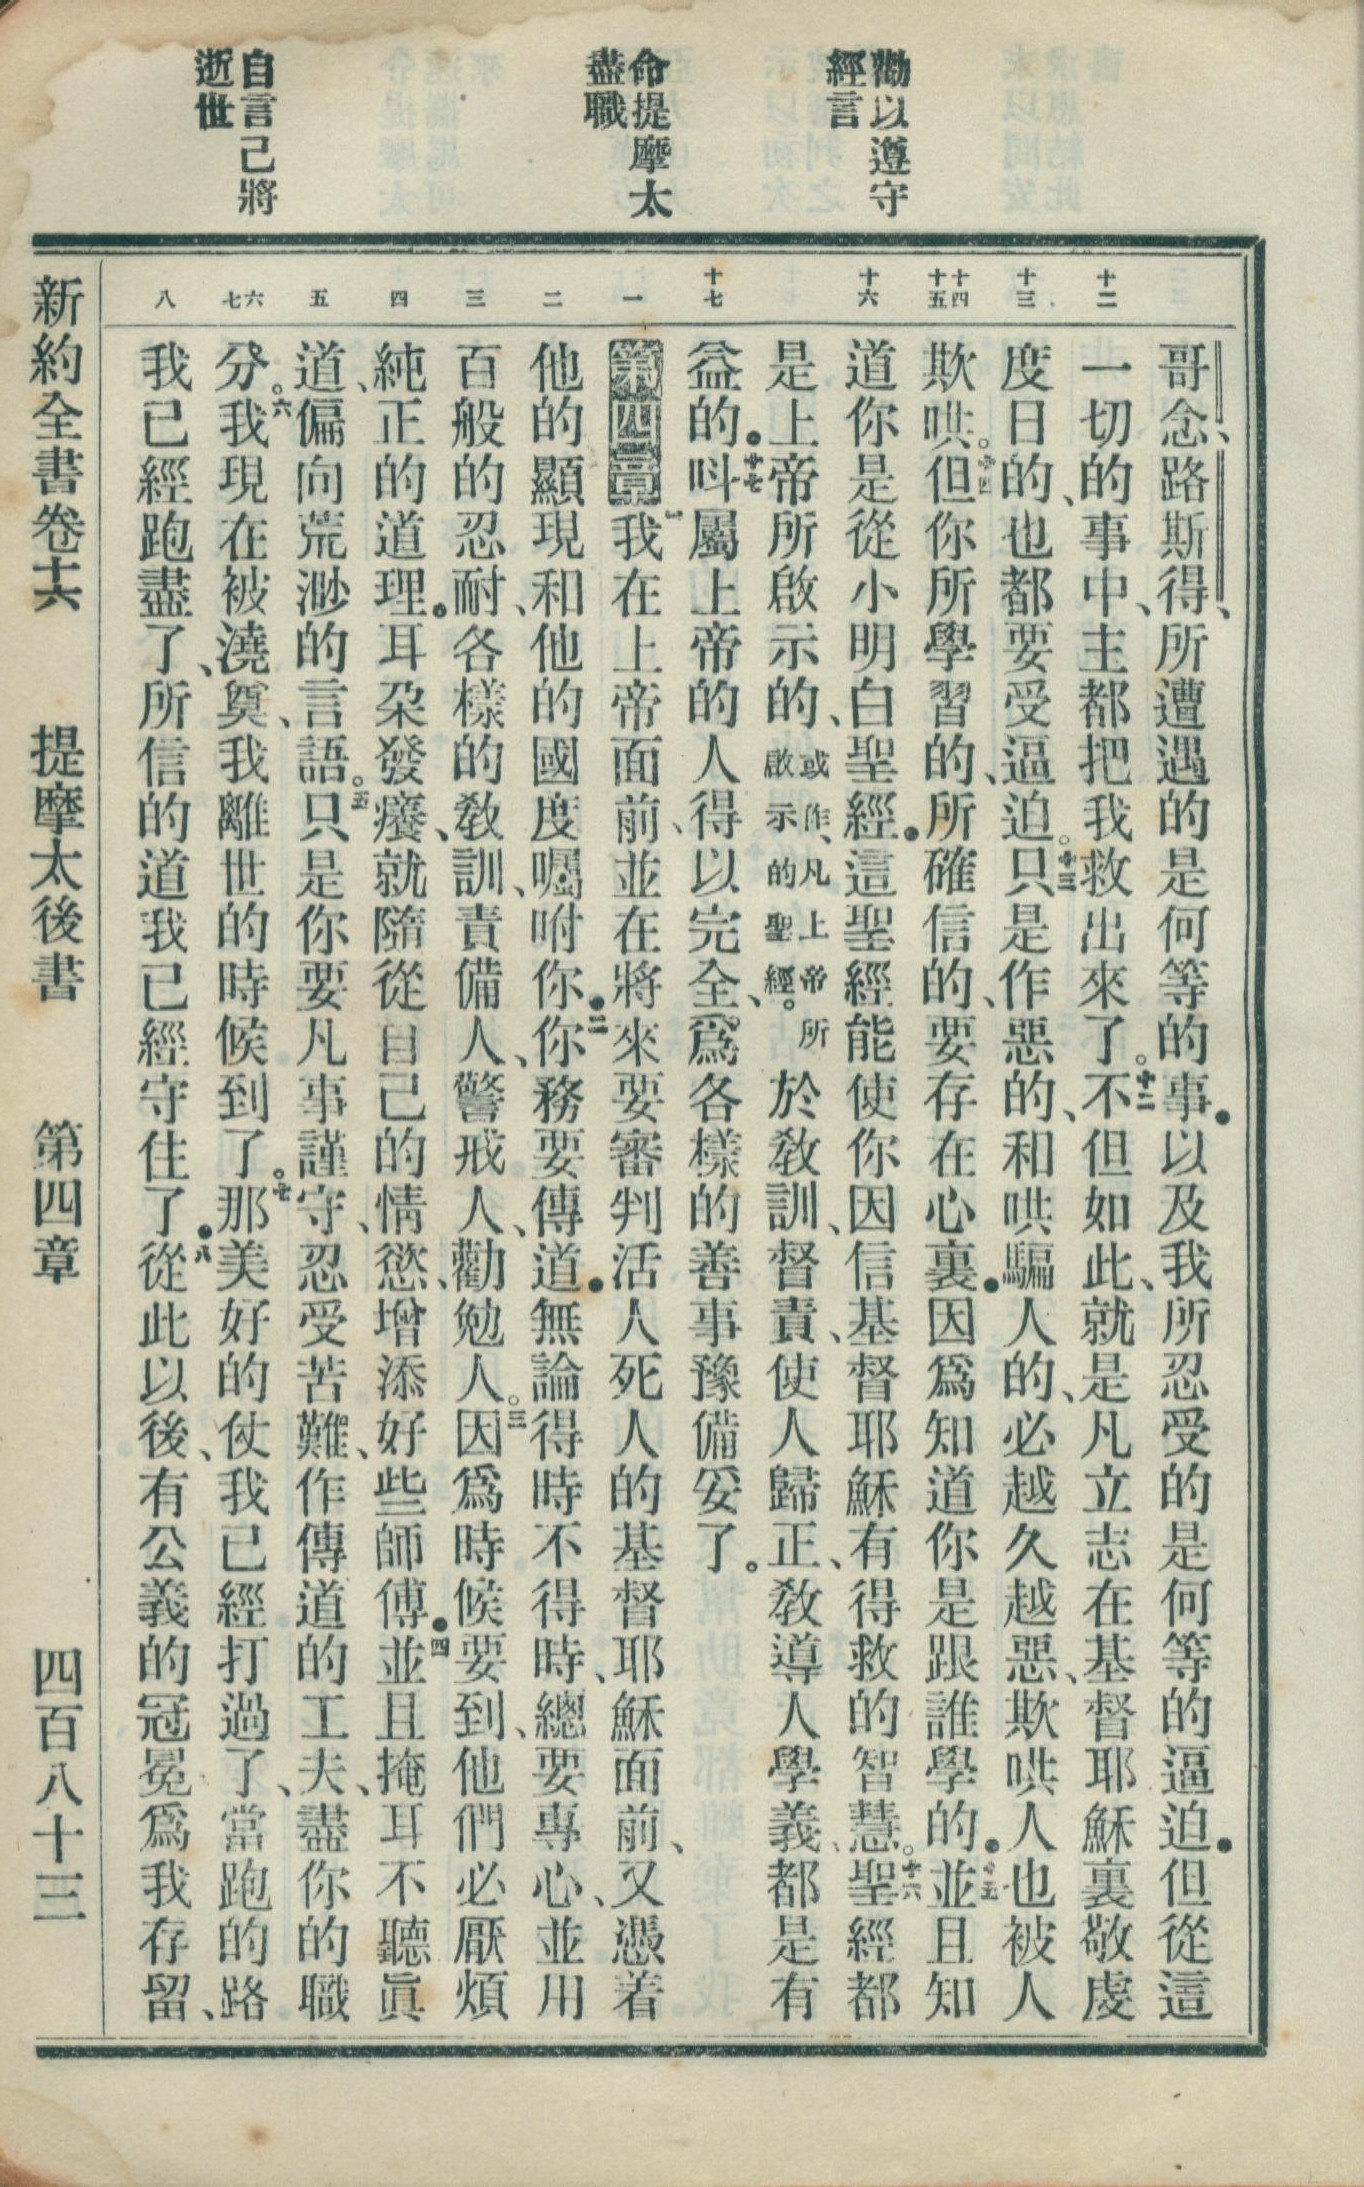 勸以遵守
經言
命提摩太
盡職
自言己將
逝世
十二
十三
十四
十五
十六
十七
一
二
三
四
五
六
七
八
哥念、路斯得、所遭遇的是何等的事．以及我所忍受的是何等的逼迫．但從這
一切的事中、主都把我救出來了。十二不但如此、就是凡立志在基督耶穌裏敬虔
度日的、也都要受逼迫。十三只是作惡的、和哄騙人的、必越久越惡、欺哄人也被人
欺哄。十四但你所學習的、所確信的、要存在心裏．因爲知道你是跟誰學的．十五並且知
道你是從小明白聖經．這聖經能使你因信基督耶穌有得救的智慧。十六聖經都
是上帝所啟示的、或作、凡上帝所啟示的聖經。於敎訓、督責、使人歸正、敎導人學義、都是有
益的．十七呌屬上帝的人得以完全、爲各樣的善事豫備妥了。
第四章一我在上帝面前、並在將來要審判活人死人的基督耶穌面前、又憑着
他的顯現和他的國度囑咐你．二你務要傳道．無論得時不得時、總要專心、並用
百般的忍耐、各樣的敎訓、責備人、警戒人、勸勉人。三因爲時候要到、他們必厭煩
純正的道理．耳朶發癢、就隨從自己的情慾、增添好些師傅．四並且掩耳不聽眞
道、偏向荒渺的言語。五只是你要凡事謹守、忍受苦難、作傳道的工夫、盡你的職
分。六我現在被澆奠、我離世的時候到了。七那美好的仗我已經打過了、當跑的路
我已經跑盡了、所信的道我已經守住了．八從此以後、有公義的冠冕爲我存留、
新約全書卷十六　提摩太後書　第四章　四百八十三